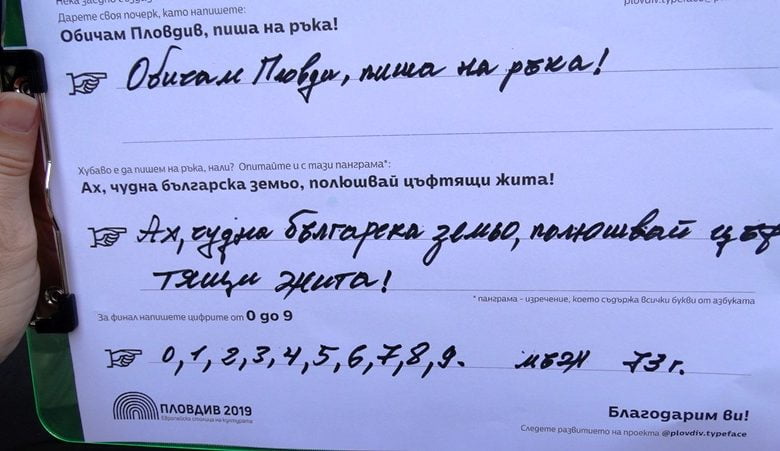 Дарете своя почерк, като напишете:
Обичам Пловдив, пиша на ръка!
Обичам Пловди, пиша на ръка!
Хубаво е да пишем на ръка, нали? Опитайте и с тази панграма*:
Ах, чудна българска земьо, полюшвай цъфтящи жита!
Ах, чудна българска земьо, полюшвай цъф
тящи жита!
* панграма - изречение, което съдържа всички букви от азбуката
За финал напишете цифрите от 0 до 9
0,1,2,3,4,5,6,7,8,9. мъж 73 г.
ПЛОВДИВ 2019
Европейска столица на културата
Благодарим ви!
Следете развитието на проекта @plovdiv.typeface